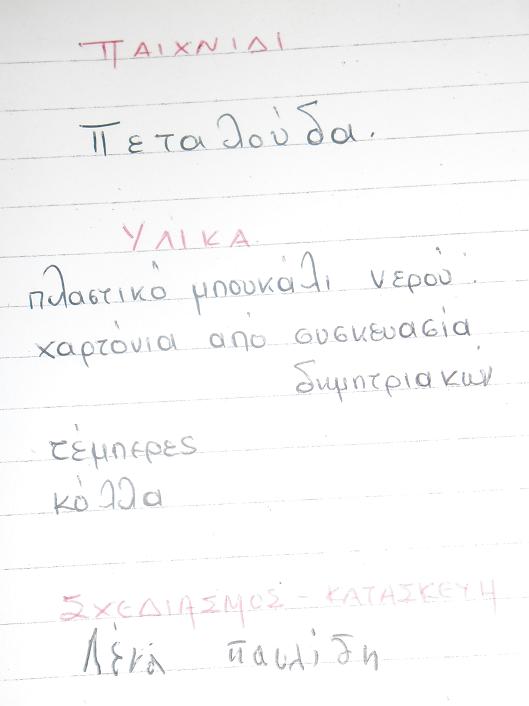 ΠΑΙΧΝΙΔΙ
Πεταλούδα.
ΥΛΙΚΑ
πλαστικό μπουκάλι νερού.
χαρτόνια από συσκευασία
δημητριακών
τέμπερες
κόλλα
ΣΧΕΔΙΑΣΜΟΣ - ΚΑΤΑΣΚΕΥΗ
Λένα Παυλίδη